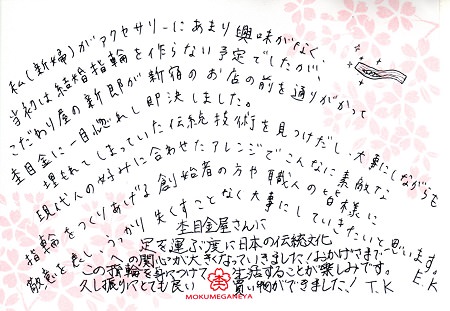 私(新婦)がアクセサリーにあまり興味がなく、
当初は結婚指輪を作らない予定でしたが、
こだわり屋の新郎が新宿のお店の前を通りがかって
杢目金に一目惚れし即決しました。
埋もれてしまっていた伝統技術を見つけだし、大事にしながらも
現代人の好みに合わせたアレンジでこんなに素敵な
指輪をつくりあげる創始者の方や職人の皆様に
敬意を表し、うっかり失くすことなく大事にしていきたいと思います。
杢目金屋さんに
足を運ぶ度に日本の伝統文化
への関心が大きくなっていきました!おかげさまで。
この指輪を身につけて生活することが楽しみです。
久し振りにとても良い買い物ができました! T.K E.K
杢
MOKUMEGANEYA